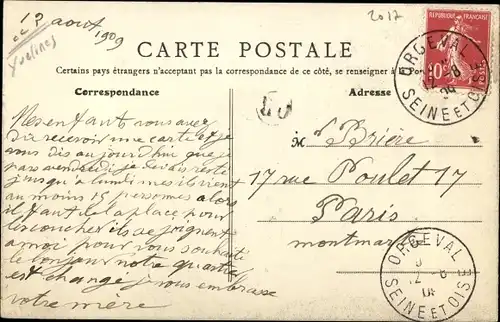 12 aout
1909
Yvelines
2017
CARTE POSTALE
Certains pays étrangers n'acceptant pas la correspondance de ce côté, se renseigner à la Poste
Correspondance
Adresse
REPUBLIQUE FRANÇAISE
10
ORGEVAL
SEINE ET OISE
M Brière
17 rue Poulet 17
Paris
montmartre
Mes enfants vous avez
dû recevoir ma carte et je
vous dis aujourd'hui que je
pars vendredi je
jusqu'à lundi mes ils
au moins 15 personnes alors
il faut de la place pour
les coucher ils se joignent
a moi pour vous souhaité
le bonjour notre quartier
est changé je vous embrasse
votre mère
ORGEVAL
12 -8
SEINE ET OISE